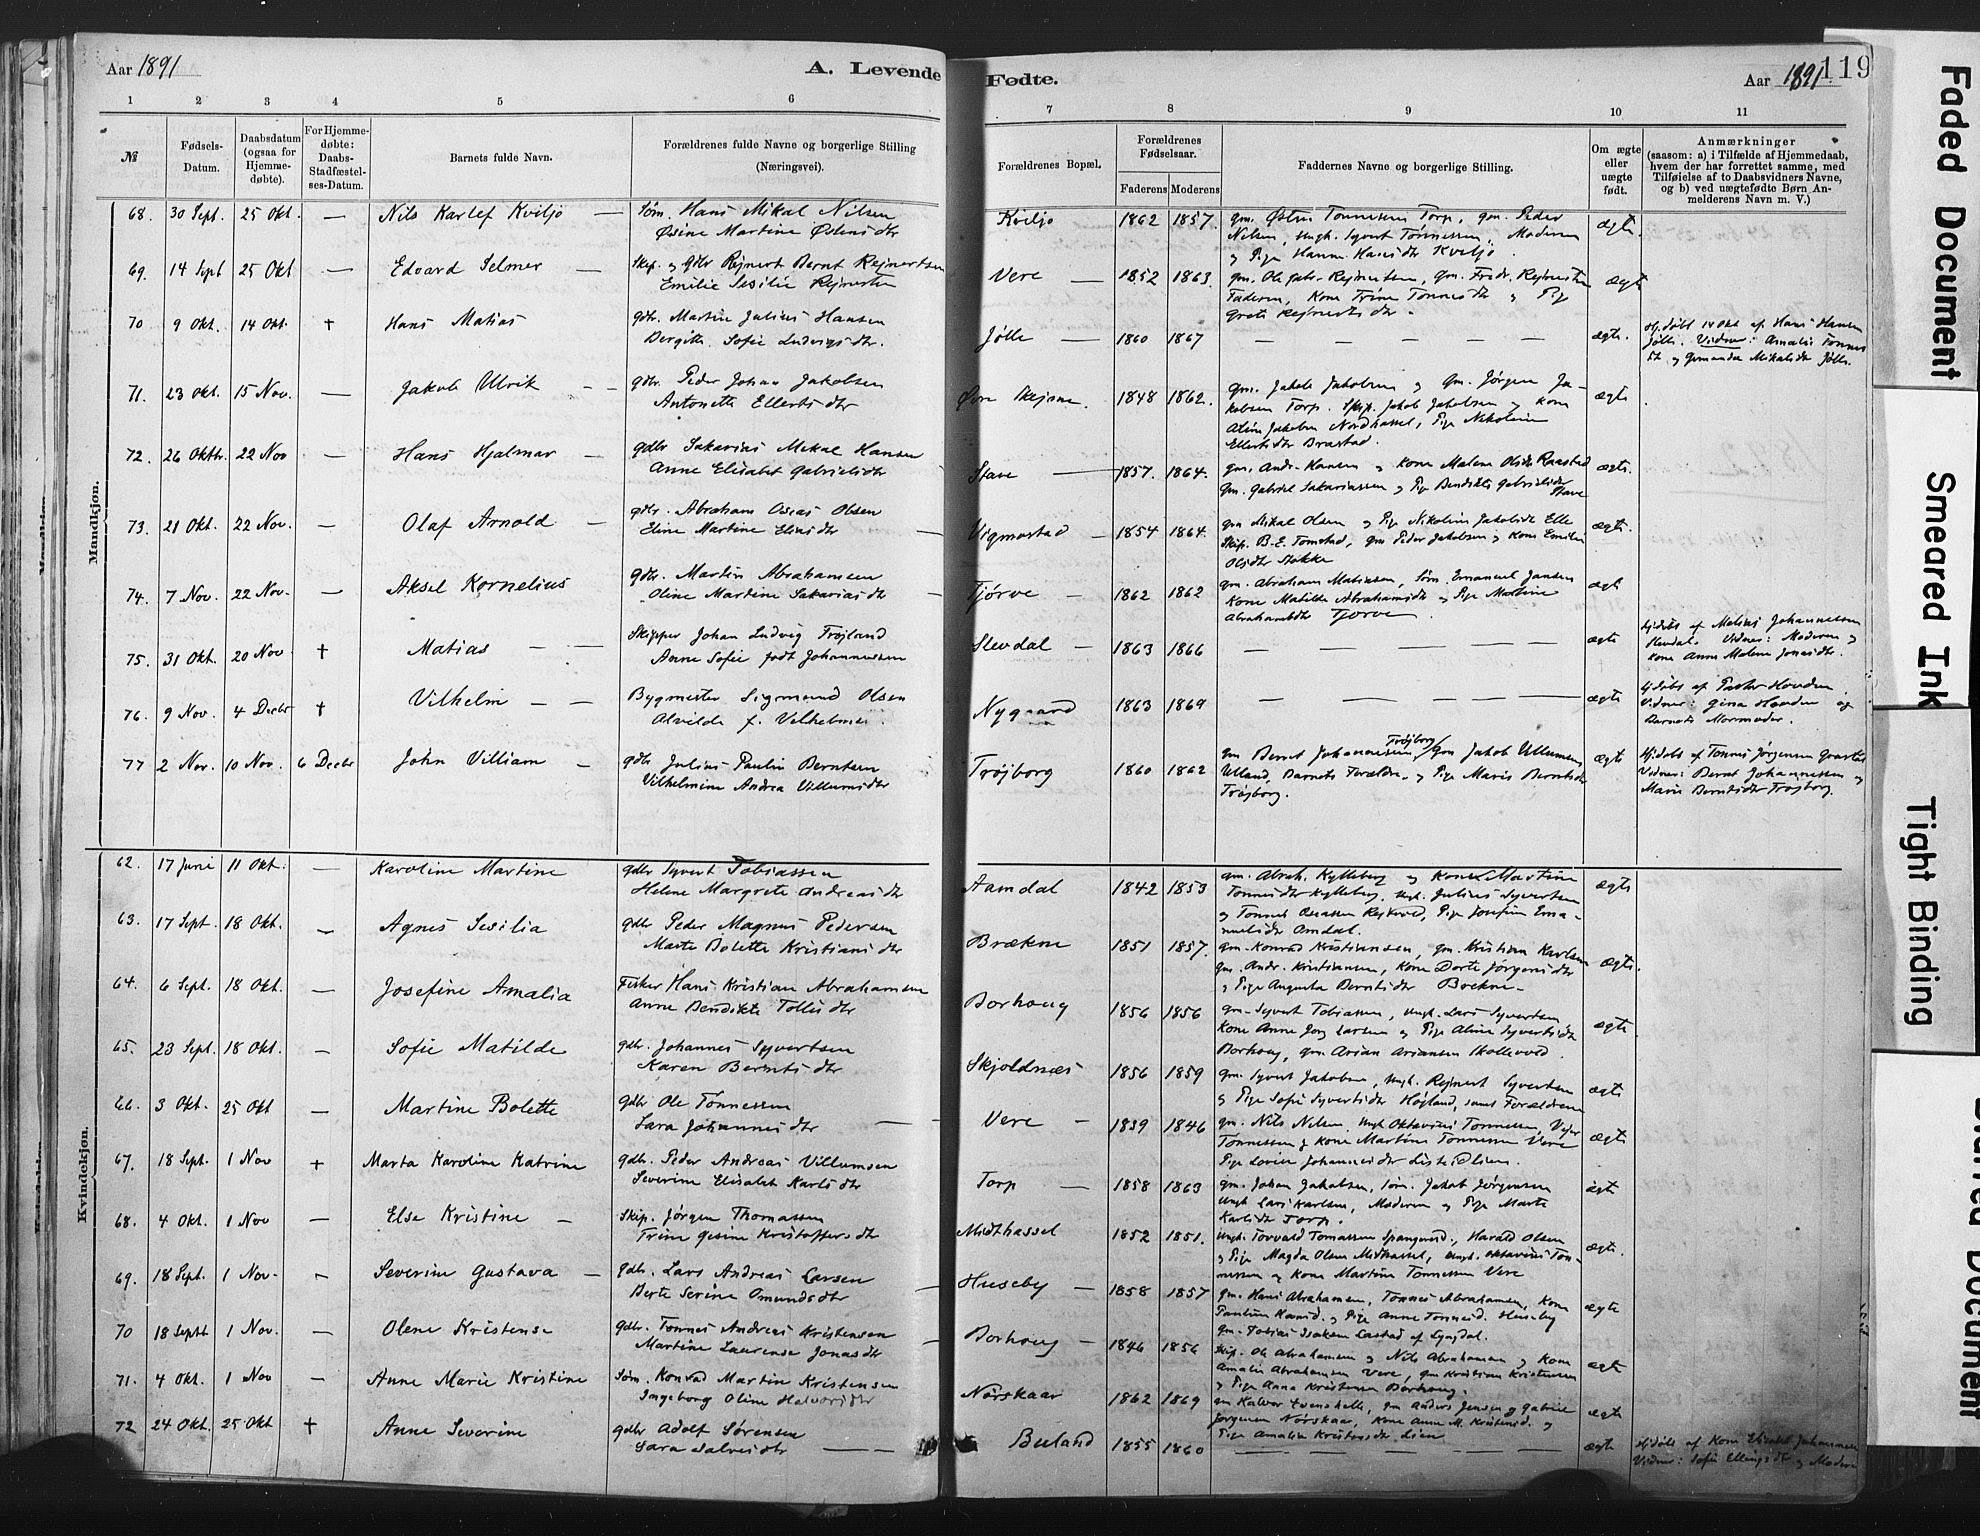 Aar 1891
A. Levende
Fødte.
Aar 1891.
119
1 2 3 4 5 6 7 8 9 10 11
№
Fødsels-
Datum.
Daabsdatum
(ogsaa for
Hjemme-
døbte).
For Hjemme-
døbte:
Daabs-
Stadfæstel-
ses-Datum.
Barnets fulde Navn.
Forældrenes fulde Navne og borgerlige Stilling
(Næringsvei).
Forældrenes Bopæl.
Forældrenes
Fødselsaar.
Faderens Moderens
Faddernes Navne og borgerlige Stilling.
Om ægte
eller
uægte
født.
Anmærkninger
(saasom: a) i Tilfælde af Hjemmedaab,
hvem der har forrettet samme, med
Tilføielse af to Daabsvidners Navne,
og b) ved uægtefødte Børn An-
melderens Navn m. V.)
Mandkjøn.
68. 30 Sept. 25 Okt. — Nils Karlef Kviljo — Søm. Hans Mikal Nilsen
Østine Martine Østens dtr
Kviljo 1862 1857. gm. Østen Tønnesen Torp, gm. Peder
Nilsen, ungk. Syvert Tønnessen, Moderen
og Pige Hanne Hansdtr Kviljo.
ægte.
69. 14 Sept 25 Okt — Edvard Selmer — Skip. og gdbr Rejnert Bernt Rejnertsen
Emilie Sesilie Rejnertsen
Vere — 1852 1863. gm. Ole Gabr. Rejnertsen, gm. Fredr. Rejnertsen
Faderen, Kone Trine Tønnesdtr og Pige
Grete Rejnertsdtr.
ægte
70 9 Okt. 14 Okt. † Hans Matias gdbr. Martin Julius Hansen
Bergitte Sofie Ludvigsdtr.
Jølle — 1860 1867 — — — — —
ægte.
Hj.døbt 14 Okt af Hans Hansen
Jølle. Vidner: Amalie Tønnes
dt. og Gemanda Mikalsdt Jølle.
71. 23 Okt. 15 Nov. — Jakob Ulrik — — gdbr. Peder Johan Jakobsen
Antonette Ellertsdtr
Øvre Skejsne. 1848 1862. gm. Jakob Jakobsen og gm. Jørgen Ja-
kobsen Torp. Skip. Jakob Jakobsen og Kone
Aline Jakobsen Nordhassel, Pige Nikoline
Ellertsdtr Brastad.
ægte
72. 26 Oktbr. 22 Nov — Hans Hjalmar — gdbr Sakarias Mekal Hansen
Anne Elisabet Gabrielsdtr
Stave 1857. 1864. gm. Andr. Hansen og Kone Malene Olsdtr Raastad
Gm. Gabriel Sakariassen og Pige Bendikte Gabrielsdtr
Stave
ægte.
73. 21 Okt. 22 Nov. — Olaf Arnold — gdbr. Abraham Oseas Olsen
Eline Martine Eliasdtr
Vigmostad — 1854 1864. gm Mikal Olsen og Pige Nikoline Jakobsdt Elle
Skip. B. E. Tomstad, gm Peder Jakobsen og Kone Emilie
Olsdtr Stokke
ægte.
74. 7 Nov. 22 Nov. — Aksel Kornelius gdbr. Martin Abrahamsen
Oline Martine Sakariasdtr
Tjørve — 1862 1862 gm. Abraham Matiassen, Søm. Emanuel Jansen
Kone Matilde Abrahamsdtr og Pige Martine
Abrahamsdtr Tjørve.
ægte
75. 31 Okt. 20 Nov. † Matias — — Skipper Johan Ludvig Trøjland
Anne Sofie født Johannessen
Slevdal — 1863 1866 — — — —
ægte
Hj.døbt af Matias Johannessen
Slevdal. Vidner: Moderen og
Kone Anne Malene Jonasdtr.
76. 9 Nov. 4 Decbr † Vilhelm — — Bygmester Sigmund Olsen
Alvilde f. Vilhelmsen.
Nygaard 1863 1869 — — — —
ægte
Hj.døbt af Pastor Hovden.
Vidner: Gina Hovden og
Barnets Mormoder.
77 2 Nov. 10 Nov. 6 Decbr John Villiam — gdbr Julius Paulin Berntsen
Vilhelmine Andrea Villumsdtr
Trøjborg 1860 1862 gm Bernt Johannessen Trøjborg, Gm Jakob Villumsen
Ulland, Barnets Forældre, og Pige Maria Berntsdtr
Trøjborg.
ægte
Hj.døbt af Tønnes Jørgensen Gravstøl
Vidner: Bernt Johannessen og
Marie Berntsdtr Trøjborg.
Kvindekjøn.
62. 17 Juni 11 Okt. — Karoline Martine gdbr Syvert Tobiassen
Helene Margrete Andreasdtr
Aamdal 1842 1853 gm. Abrah. Kylleberg og Kone Martine
Tønnesdtr Kylleberg, ungk. Julius Syvertsen
og Tønnes Oseassen Rejkvod, Pige Josefine Ema-
nuelsdtr Amdal.
ægte
63. 17 Sept. 18 Okt. — Agnes Sesilia gdbr Peder Magnus Pedersen
Marte Bolette Kristiansdtr
Brækne 1851 1857. gm. Konrad Kristiansen, gm. Kristian Karlsen
gm. Andr. Kristiansen, Kone Dorte Jørgensdtr
og Pige Augusta Berntsdtr Brekne.
ægte.
64. 6 Sept. 18 Okt. — Josefine Amalia Fisker Hans Kristian Abrahamsen
Anne Bendikte Tollisdtr
Borhoug 1856 1856 gm. Syvert Tobiassen, ungk. Lars Syvertsen
Kone Anne Jorg Larsen og Pige Aline Syvertsdtr
Borhoug, gm. Arian Ariansen Skollevold.
ægte
65. 23 Sept. 18 Okt. — Sofie Matilde gdbr. Johannes Syvertsen
Karen Berntsdtr
Skjoldnæs 1856 1859 gm. Syvert Jakobsen, ungk. Rejnert Syvertsen
og Pige Sofie Syvertsdtr Højland, samt Forældrene
ægte
66. 3 Okt. 25 Okt — Martine Bolette gdbr Ole Tønnessen
Sara Johannesdtr
Vere — 1839 1846 gm. Nils Nilsen, ungk Oktavius Tønnessen, Vejer
Tønnessen og Kone Martine Tønnessen Vere
Pige Lovise Johannesdtr
ægte
67. 18 Sept. 1 Nov † Marta Karoline Katrine gdbr. Peder Andreas Villumsen
Severine Elisabet Karlsdtr
Torp — 1858 1863 gm. Johan Jakobsen, søm. Jakob Jørgensen
ungk Lars Karlsen, Moderen og Pige Marte
Karlsdtr Torp.
ægte
68. 4 Okt. 1 Nov — Else Kristine — Skip. Jørgen Thomassen
Trine Gesine Kristoffersdtr
Midthassel 1852 1851. ungk. Torvald Tomassen Spangereid, Harald Olsen
og Pige Magda Olsen Midhassel, ungk. Oktavius Tøn-
nessen og Kone Martine Tønnessen Vere
ægte.
69. 18 Sept. 1 Nov. — Severine Gustava — gdbr. Lars Andreas Larsen
Berte Serine Omundsdtr
Huseby — 1858 1857 gm. Hans Abrahamsen, Tønnes Abrahamsen, Kone
Pauline Hansd. og Pige Anne Tønnesd. Huseby
gm. Tobias Isaksen Lastad af Lyngdal.
ægte
70 18 Septbr 1 Nov. — Olene Kristense gdbr. Tønnes Andreas Kristensen
Martine Laurense Jonasdtr
Borhoug — 1846 1856 Skip. Ole Abrahamsen og Nils Abrahamsen og Kone
Amalie Abrahamsen Vere, gm Kristian Kristensen
og Pige Anna Kristensen Borhoug.
ægte
71. 4 Okt. 1 Nov — Anne Marie Kristine Søm. Konrad Martin Kristensen
Ingeborg Oline Halvorsdtr
Nørskaar 1862 1869 gm Halvor Evenshelle, gm Anders Jensen og Gabriel
Jørgensen Nørskaar, Kone Anne M. Kristensd. og
Pige Amalia Kristensdtr Lien
ægte
72 24 Okt. 25 Okt † Anne Severine gdbr Adolf Sørensen
Sara Salvesdtr — —
Buland 1855 1860 — — — —
ægte
Hj.døbt af Kone Elisabet Johannesen
Vidner: Sofie Ellingsdtr og Moderen
Faded Document
Smeared Ink
Tight Binding
Blurred Document